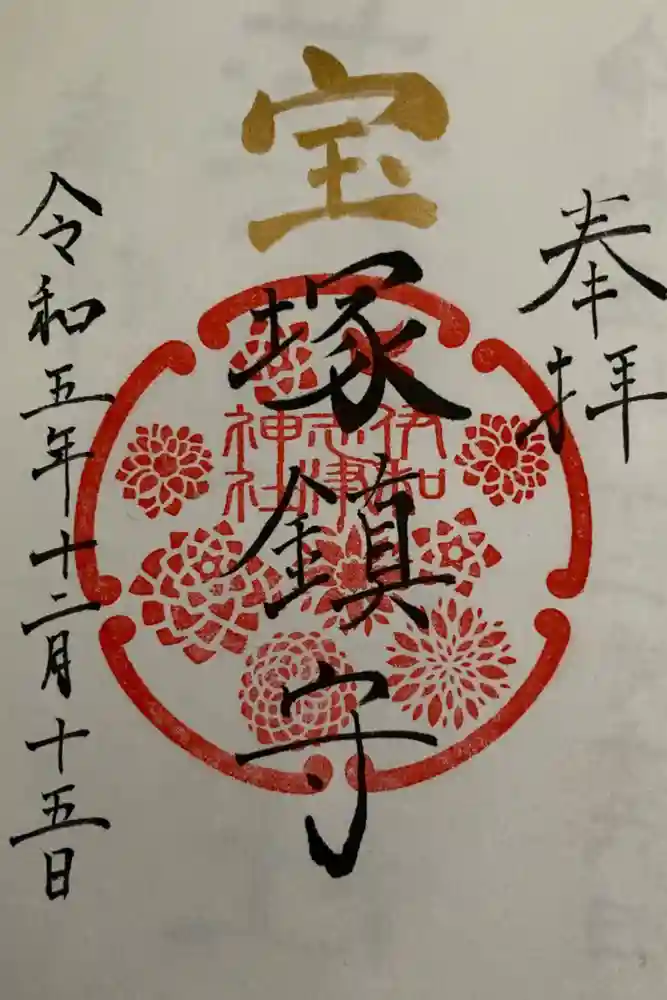 奉拝
宝塚鎮守
伊和
志津
神社
令和五年十二月十五日